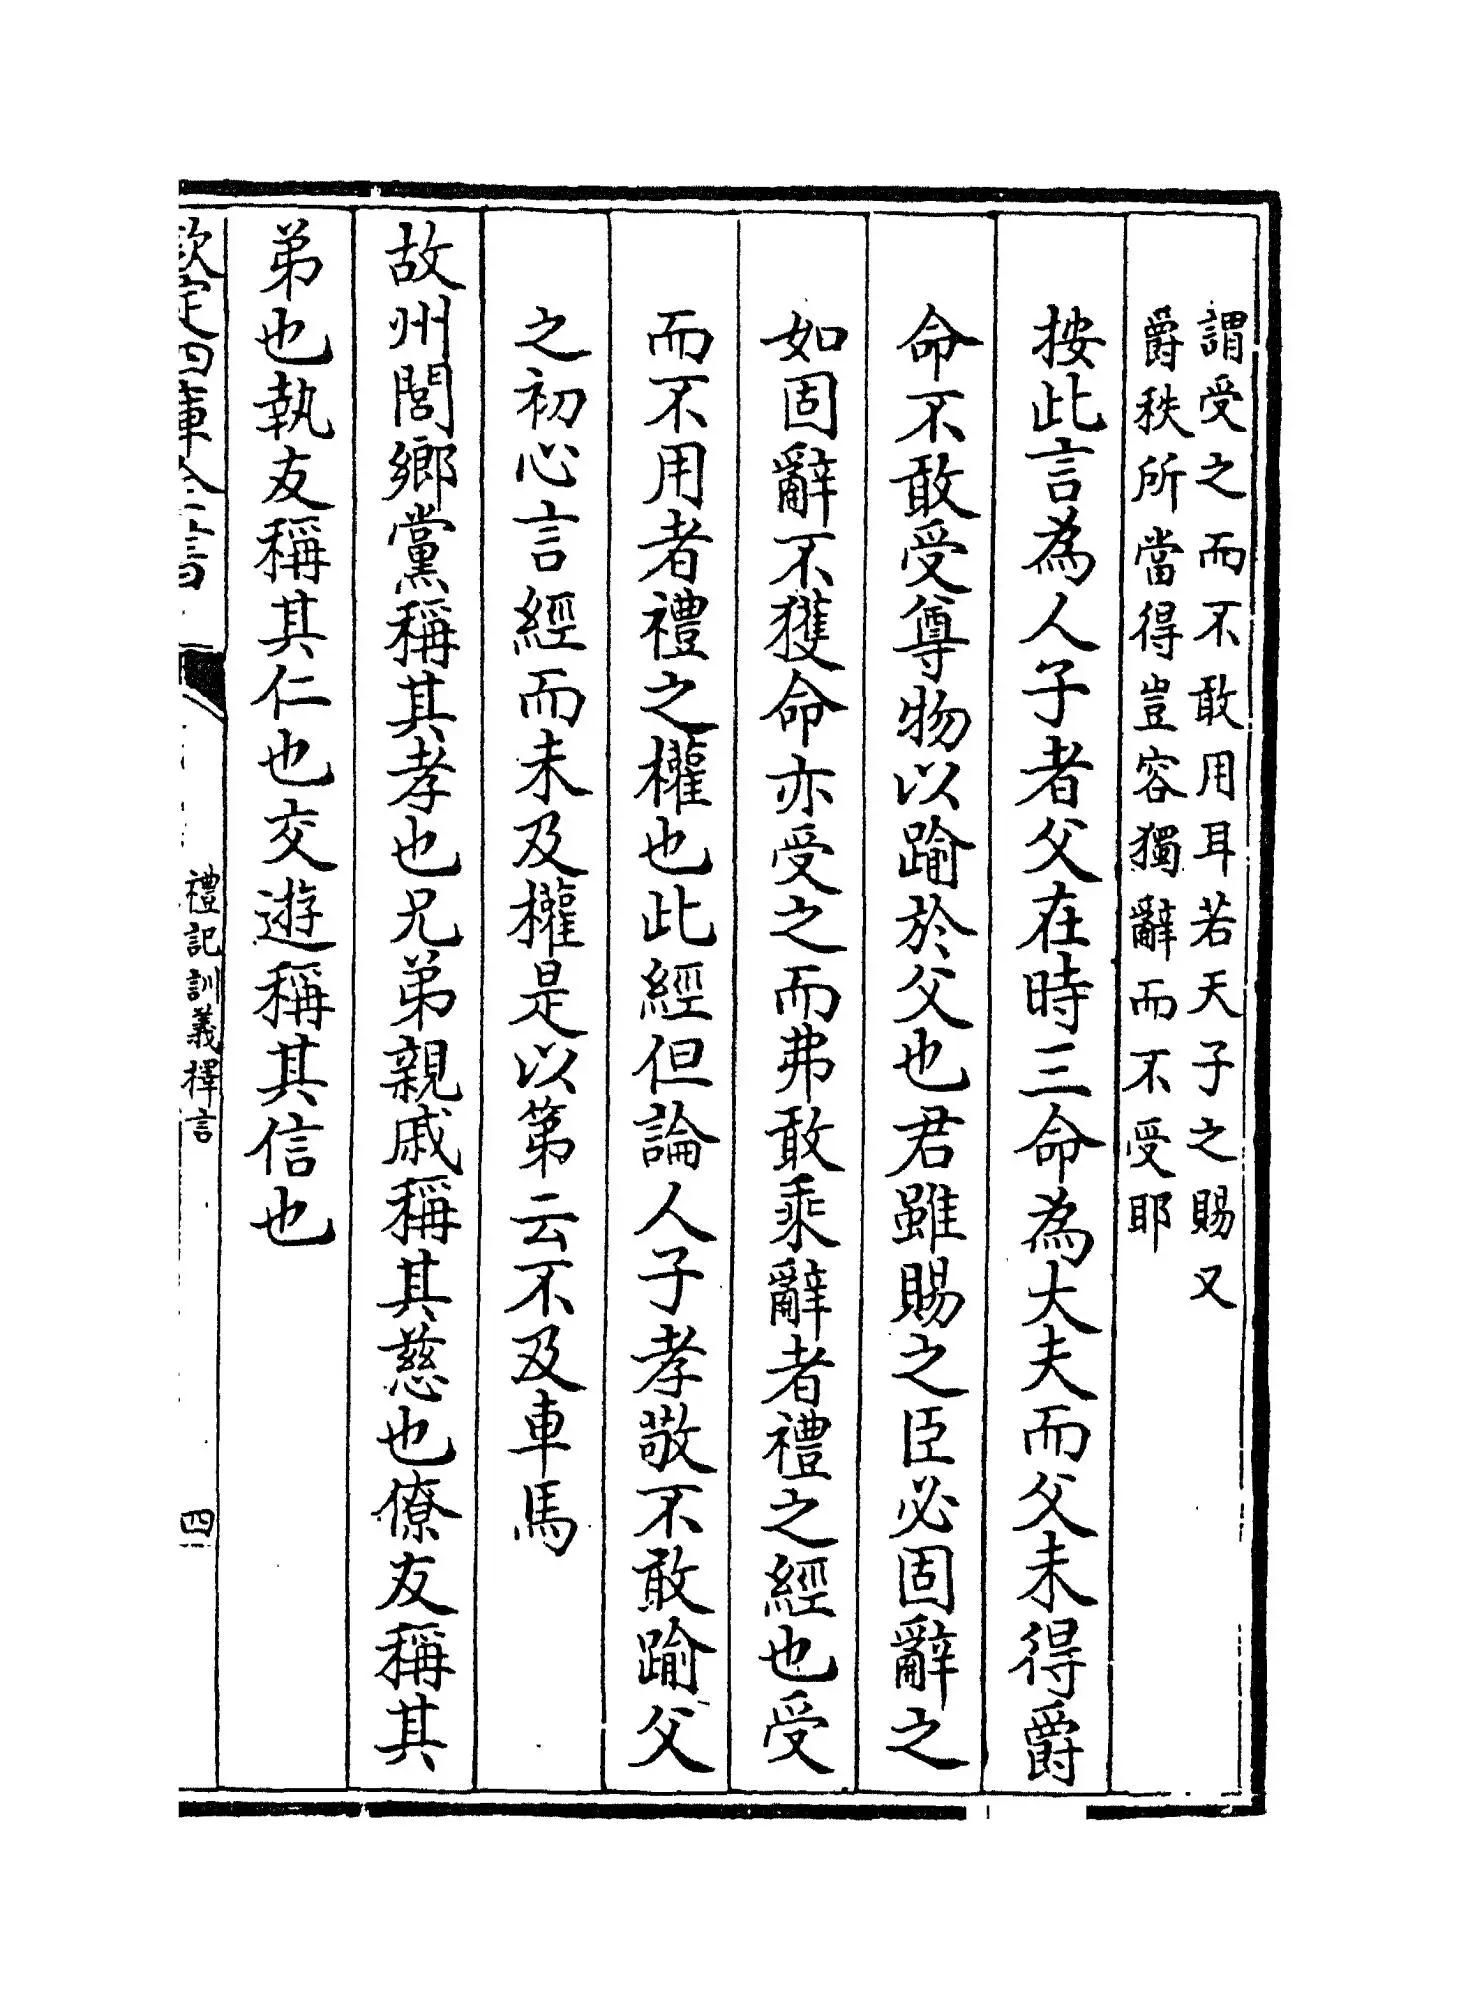 謂受之而不敢用耳若天子之賜又
爵秩所當得豈容獨辭而不受耶
按此言為人子者父在時三命為大夫而父未得爵
命不敢受尊物以踰於父也君雖賜之臣必固辭之
如固辭不獲命亦受之而弗敢乘辭者禮之經也受
而不用者禮之權也此經但論人子孝敬不敢踰父
之初心言經而未及權是以第云不及車馬
故州閭鄉黨稱其孝也兄弟親戚稱其慈也僚友稱其
弟也執友稱其仁也交遊稱其信也
欽定四庫全書
禮記訓義擇言
四